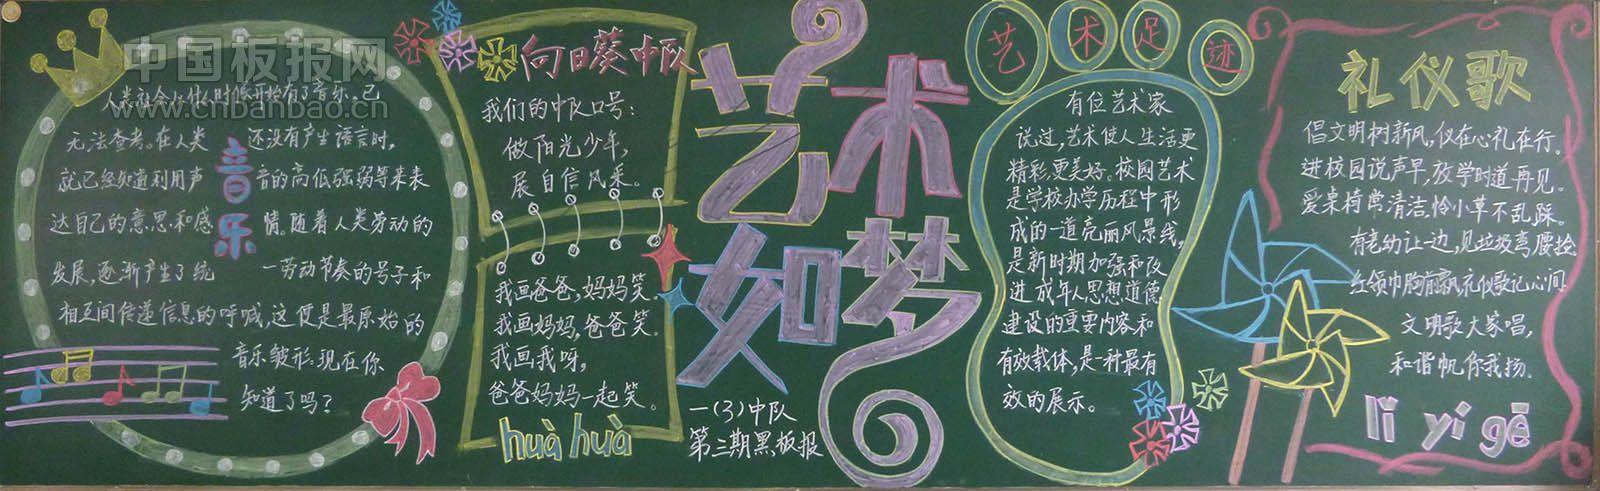 中国板报网
www.cnbanbao.cn
人类社会从什么时候开始有了音乐、已
无法查考。在人类还没有产生语言时,
就已经知道利用声音的高低强弱等来表
达自己的意思和感情。随着人类劳动的
发展,逐渐产生了统一劳动节奏的号子和
相互间传递信息的呼喊,这便是最原始的
音乐皱形.现在你
知道了吗?
音乐
向日葵中队
我们的中队口号:
做阳光少年,
展自信风采。
我画爸爸,妈妈笑。
我画妈妈,爸爸笑。
我画我呀,
爸爸妈妈一起笑。
huà huà
艺术
如梦
一(3)中队
第三期黑板报
艺术足迹
有位艺术家
说过,艺术使人生活更
精彩,更美好。校园艺术
是学校办学历程中形
成的一道亮丽风景线,
是新时期加强和改
进成年人思想道德
建设的重要内容和
有效载体,是一种最有
效的展示。
礼仪歌
倡文明树新风,仪在心礼在行。
进校园说声早,放学时道再见。
爱桌椅常清洁,怜小草不乱踩。
有老幼让一边,见垃圾弯腰捡
红领巾胸前飘,礼仪歌记心间
文明歌大家唱,
和谐帆你我扬。
lǐ yí gē